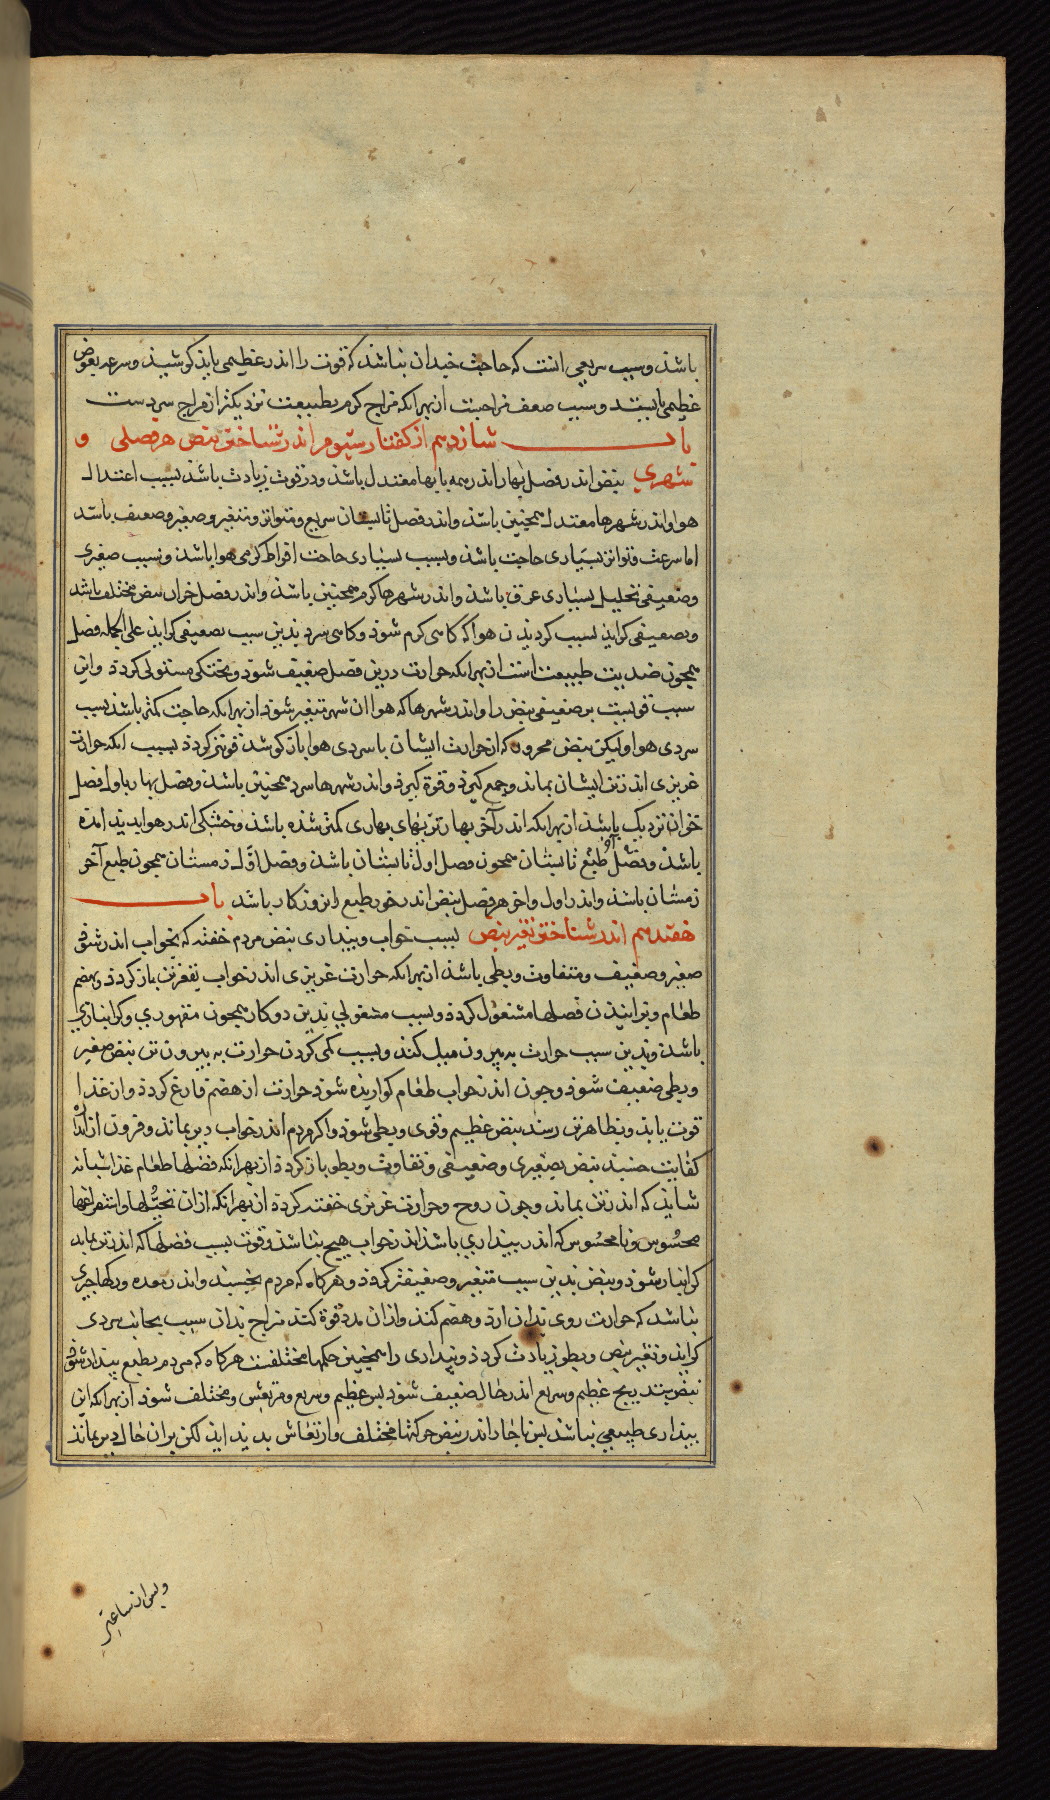 باشذ وسبب سریعی انست که حاجت چندان نباشد که قوت را اندر عظیمی بایذ کوشیذ وسرعه بعوض
عظیمی بایستد وسبب ضعف مزاجیت ان بهر انکه مزاج کرم بطبیعت نزدیکتر از مزاج سردست
باب شازدهم از کفتار سیوم اندر شناختن نبض هر فصلی و
شهری نبض اندر فصل بهار اندر همه بابها معتدل باشذ ودر قوت زیادت باشذ بسبب اعتدال
هوا واندر شهرها معتدل همچنین باشذ واندر فصل تابستان سریع ومتواتر ومتغیر وصغیر وضعیف باشد
اما سرعت وتواتر بسیاری حاجت باشذ وبسبب بسیاری حاجت افراط کرمی هوا باشذ وسبب صغیری
وضعیفی تحلیل بسیاری عرق باشذ واندر شهرها کرم همچنین باشذ واندر فصل خزان نبض مختلف باشد
وبضعیفی کرایذ بسبب کردیذن هوا که کاهی کرم شوذ وکاهی سرد بدین سبب بضعیفی کرایذ علی الجمله فصل
همچون ضدیت طبیعت است ان بهر انکه حرارت درین فصل ضعیف شوذ وخشکی مستولی کردذ واین
سبب قویست بر ضعیفی نبض را واندر شهرها که هوا ان شهر متغیر شوذ ان بهر انکه حاجت کمتر باشذ بسبب
سردی هوا ولیکن نبض محرور که از حرارت ایشان با سردی هوا باز کوشد قوی‌تر کردذ بسبب انکه حرارت
غریزی اندر تن ایشان بماند وجمع کیرذ وقوة کیرذ واندر شهرها سرد همچنین باشذ وفصل بهار باول فصل
خزان نزدیک باشذ از بهر انکه اندر آخر بهار تریهای بهاری کمتر شذه باشذ وخشکی اندر هوا پدید امذه
باشذ وفصل طبع تابستان همچون فصل اول تابستان باشذ وفصل اول زمستان همچون طبع آخر
زمستان باشذ واندر اول واخر هر فصل نبض اندر خور طبع ان روزکار باشذ باب
هفتدهم اندر شناختن تغیر نبض بسبب خواب وبیذاری نبض مردم خفته که بخواب اندر شوذ
صغیر وضعیف ومتفاوت وبطی باشذ از بهر انکه حرارت غریزی اندر خواب بقعر تن باز کردذ وبهضم
طعام وپزانیدن فصلها مشغول کردذ وبسبب مشغولی بدین دو کار همچون مقهوری وکرانباری
باشذ وبدین سبب حرارت به بیرون میل کند وبسبب کمی کردن حرارت به بیرون تن نبض صغیر
وبطی ضعیف شوذ وجون اندر خواب طعام کواریذه شوذ حرارت از هضم فارغ کردذ وان غذا
قوت یابذ وبظاهر تن رسد نبض عظیم وقوی وبطی شوذ واکر مردم اندر خواب دیر بماند وفزون از اندازه
کفایت خسبذ نبض بصغیری وضعیفی وتفاوت وبطو باز کردذ از بهر انکه فضلها طعام غذا شبانه
شایذ که اندر تن بماند وجون روح وحرارت غریزی خفته کردذ ان بهر انکه ازان تحللها واستفراغها
محسوس ونا محسوس که اندر بیداری باشذ اندر خواب هیچ نباشذ وقوت بسبب فضلها که اندر تن بماند
کرانبار شوذ ونبض بدین سبب متغیر وضعیفتر کردذ وهرکاه که مردم بخسبند واندر معده ورکها چیزی
نباشد که حرارت روی بدان ارد وهضم کند وازان مدد قوة کند مزاج بدان سبب بجانب سردی
کراید وتغیر نبض وبطو زیادت کردذ وبیداری را همچنین حکمها مختلفست هرکاه که مردم بطبع بیدار شوذ
نبض بتدریج عظیم وسریع اندر حال ضعیف شوذ بس عظیم وسریع ومرتعش ومختلف شوذ از بهر انکه این
بیذاری طبیعی نباشد بس ناجار اندر نبض حرکتها مختلف وارتعاش بدید ایذ لکن بران حال دیر بماند
وبس از ساعتی